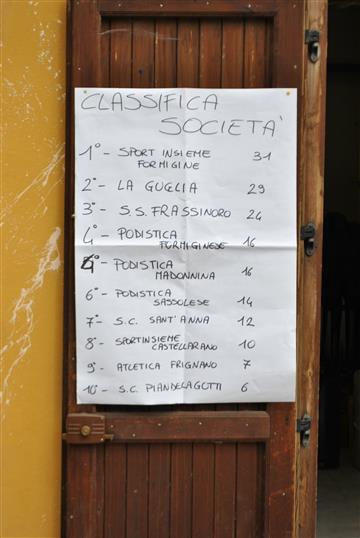 CLASSIFICA
SOCIETA'
1° - SPORT INSIEME 31
FORMIGINE
2° - LA GUGLIA 29
3° - S.S. FRASSINORO 24
4° - PODISTICA
FORMIGINESE 16
4° - PODISTICA
MADONNINA 16
6° - PODISTICA
SASSOLESE 14
7° - S.C. SANT'ANNA 12
8° - SPORTINSIEME
CASTELLARANO 10
9° - ATLETICA FRIGNANO 7
10° - S.C. PIANDELAGOTTI 6